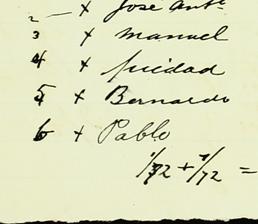 2 — x José Anto
3 x manuel
4 x Piedad
5 x Bernardo
6 + Pablo
1/72 + 1/72 =